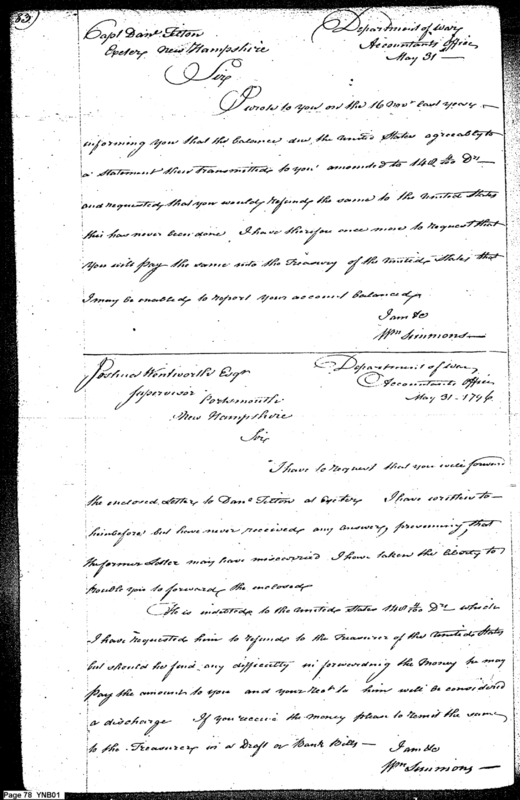 53)
Capt Danl Tilton
Exeter New Hampshire
Department of War
Accountants Office
May 31
Sir
I wrote to you on the 16 Novr last year
informing you that the balance due the United States agreeably to
a Statement then transmitted to you amounted to 148 Drs
and requested that you would refund the same to the United States
this has never been done I have therefore once more to request that
you will pay the same into the Treasury of the United States that
I may be enabled to report your account balanced
I am &c
Wm Simmons
Joshua Wentworth Esqr
Supervisor Portsmouth
New Hampshire
Department of War
Accountants Office
May 31 - 1796
Sir
I have to request that you will forward
the enclosed Letter to Danl Tilton at Exeter I have written to
him before but have never received any answer, presuming that
the former Letter may have miscarried I have taken the liberty to
trouble you to forward the enclosed
He is indebted to the United States 148 Drs which
I have requested him to refund to the Treasurer of the United States
but should he find any difficulty in forwarding the Money he may
pay the amount to you and your rect to him will be considered
a discharge If you receive the money please to remit the same
to the Treasurer in a Draft or Bank Bills —
I am &c
Wm Simmons
Page 78 YNB01